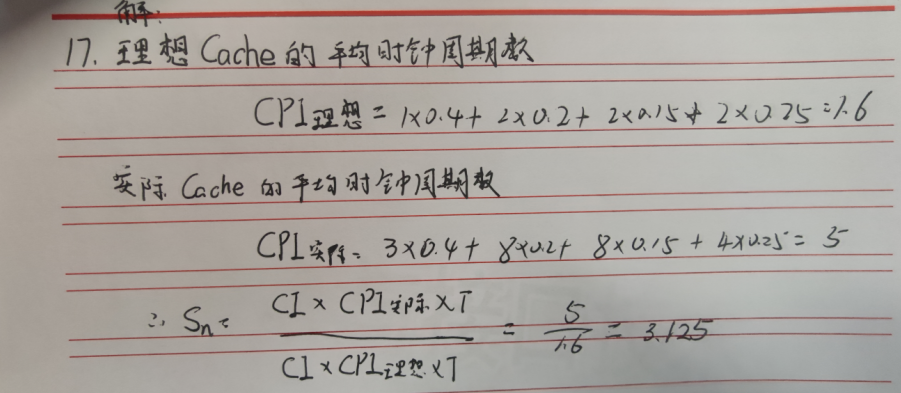 解:
17. 理想 Cache 的平均时钟周期数
CPI理想 = 1×0.4 + 2×0.2 + 2×0.15 + 2×0.25 = 1.6
实际 Cache 的平均时钟周期数
CPI实际 = 3×0.4 + 8×0.2 + 8×0.15 + 4×0.25 = 5
∴ Sn = CI × CPI实际 × T / CI × CPI理想 × T = 5 / 1.6 = 3.125